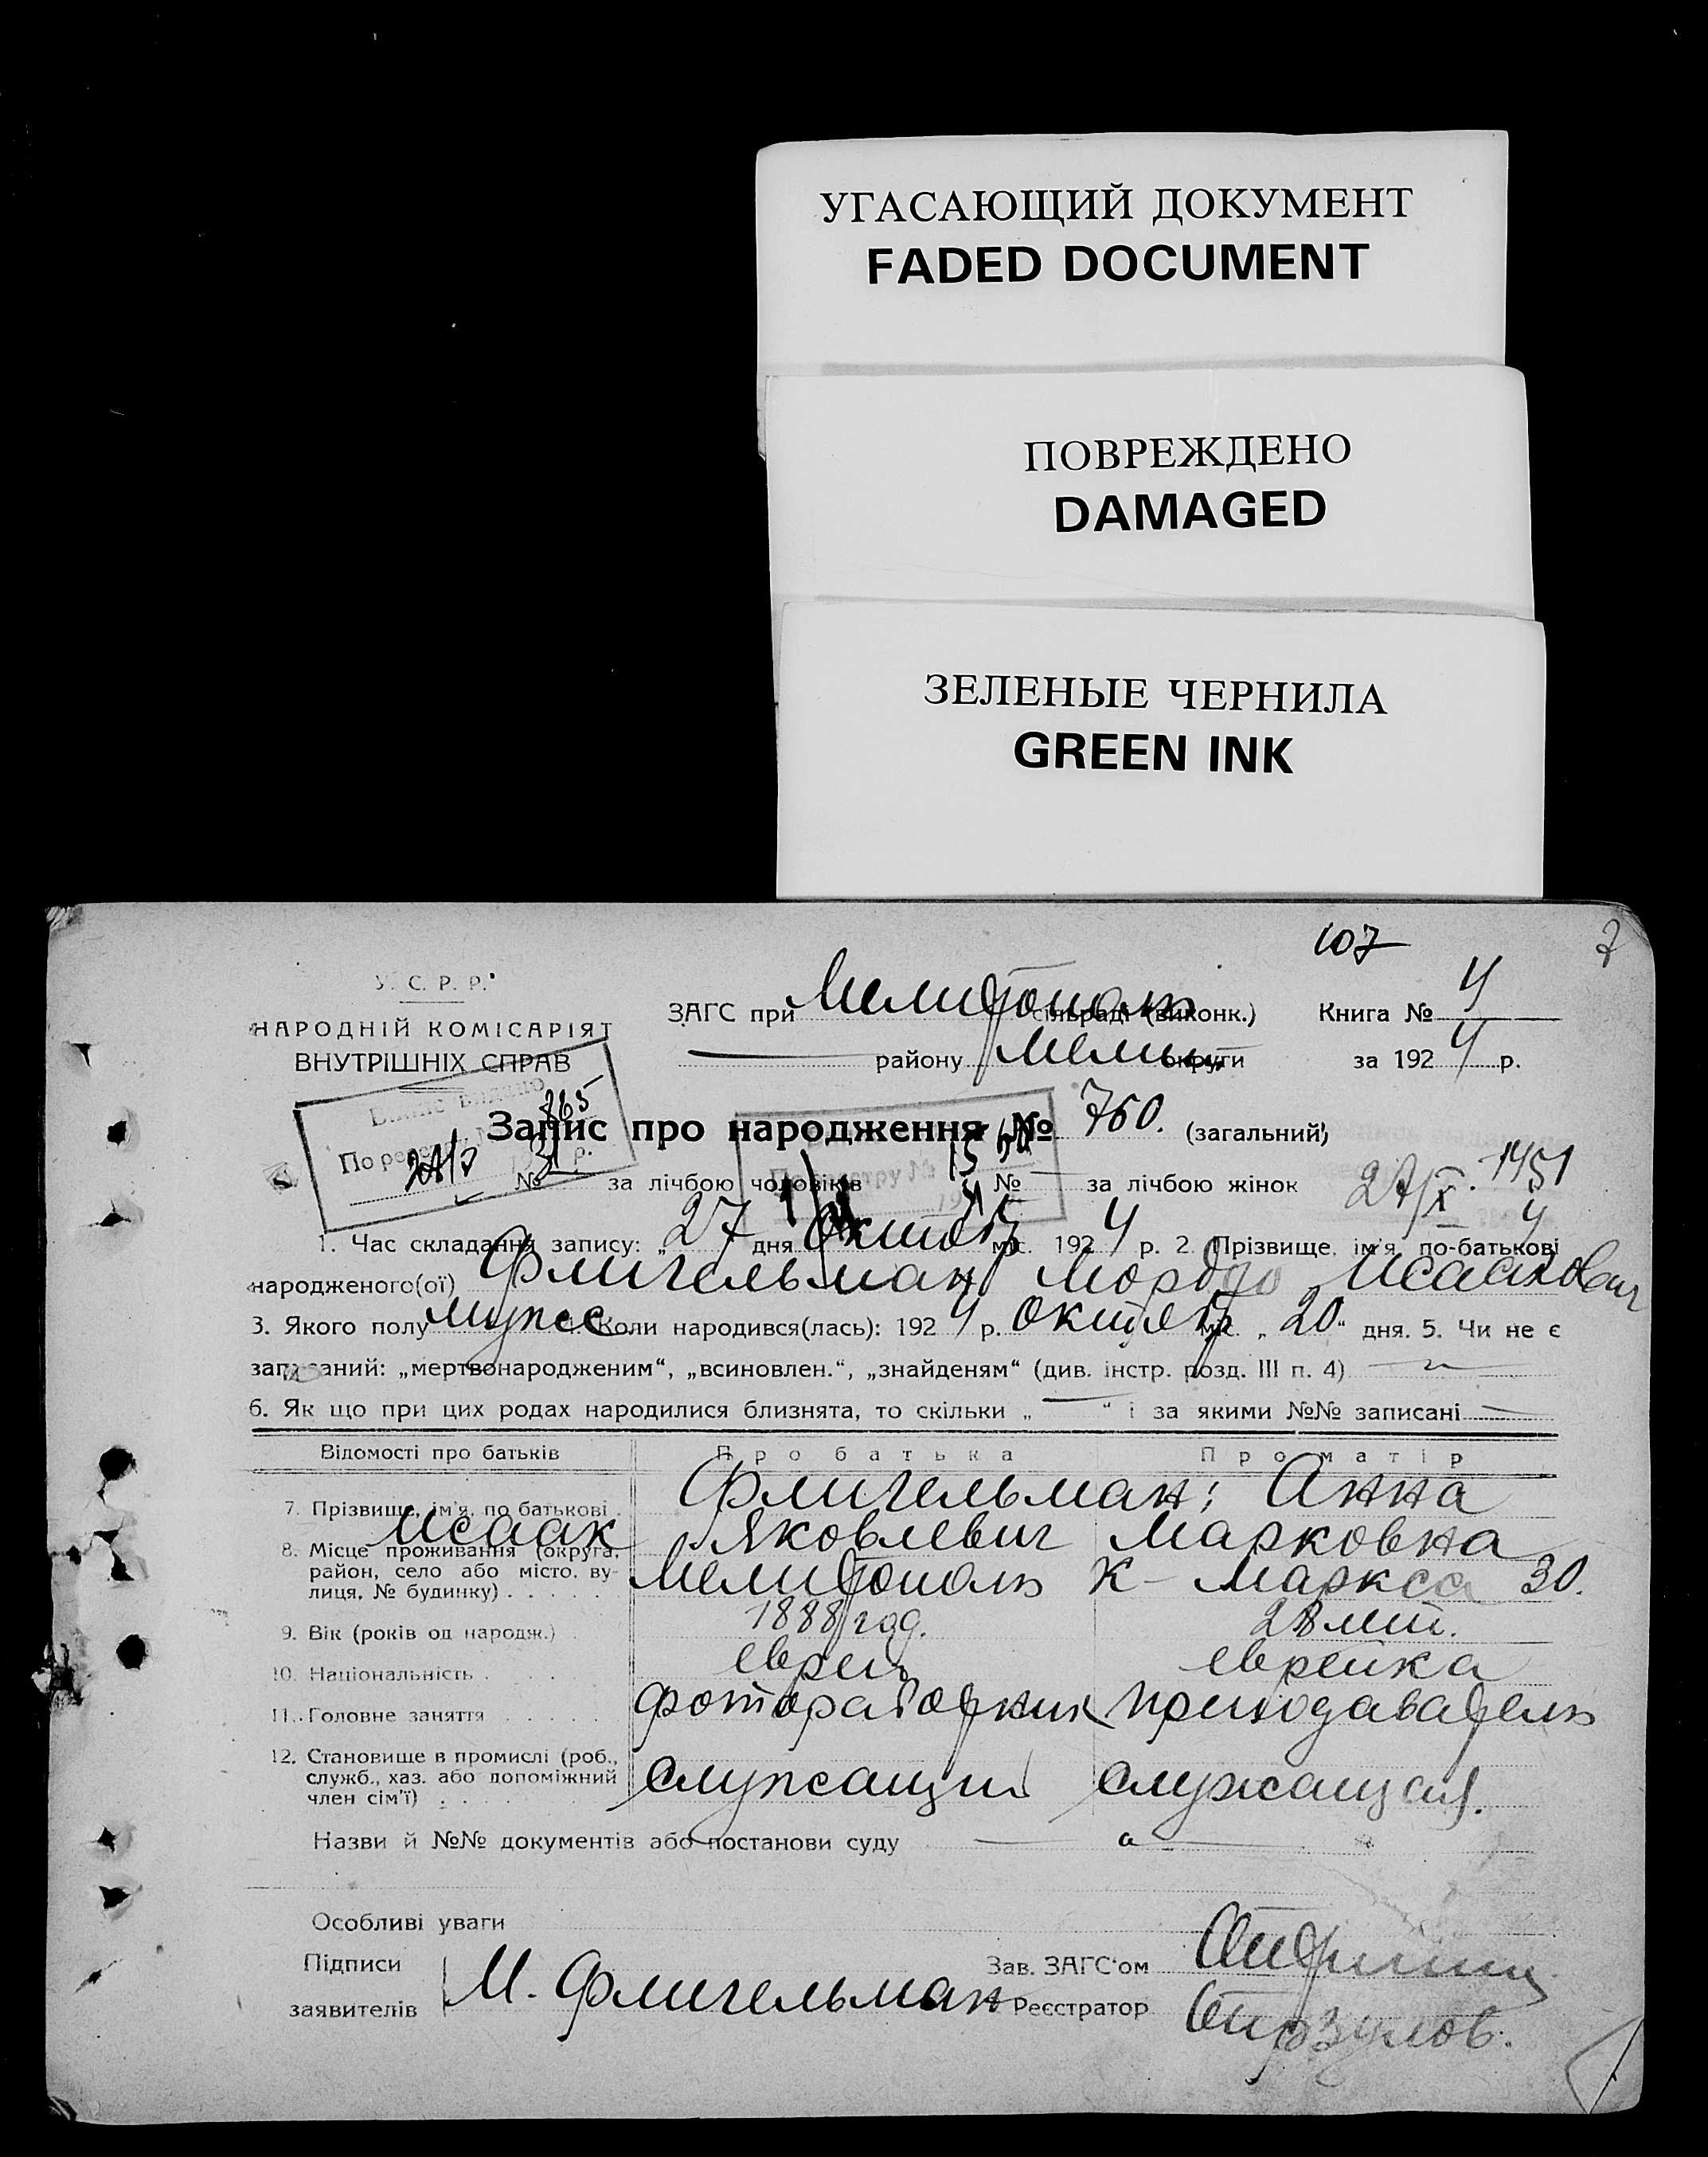 УГАСАЮЩИЙ ДОКУМЕНТ
FADED DOCUMENT
ПОВРЕЖДЕНО
DAMAGED
ЗЕЛЕНЫЕ ЧЕРНИЛА
GREEN INK
107
7
У. С. Р. Р.
НАРОДНІЙ КОМІСАРІЯТ
ВНУТРІШНІХ СПРАВ
ЗАГС при Мелитополь сільраді (виконк.) Книга № 4
району Мелит округи за 1924 р.
Запис про народження № 760. (загальний)
№ за лічбою чоловіків № за лічбою жінок
1. Час складання запису: „27 дня Октяб міс. 1924 р. 2. Прізвище, ім'я, по-батькові
народженого(ої) Флигельман Мордко Исаакович
3. Якого полу мужс 4. Коли народився(лась): 1924 р. октяб міс. „20“ дня. 5. Чи не є
записаний: „мертвонародженим“, „всиновлен.“, „знайденям“ (див. інстр. розд. III п. 4)
6. Як що при цих родах народилися близнята, то скільки „ “ і за якими №№ записані
Відомості про батьків Про батька Про матір
7. Прізвище, ім'я, по батькові Флигельман; Анна
Исаак Яковлевич Марковна
8. Місце проживання (округа,
район, село або місто, ву-
лиця, № будинку) Мелитополь К-Маркса 30.
9. Вік (років од народж.) 1888 год. 28 лет.
10. Національність еврей еврейка
11. Головне заняття фотоработник преподаватель
12. Становище в промислі (роб.,
служб., хаз. або допоміжний
член сім'ї) служащий служащая.
Назви й №№ документів або постанови суду
Особливі уваги
Підписи
заявителів М. Флигельман
Зав. ЗАГС'ом
Реєстратор